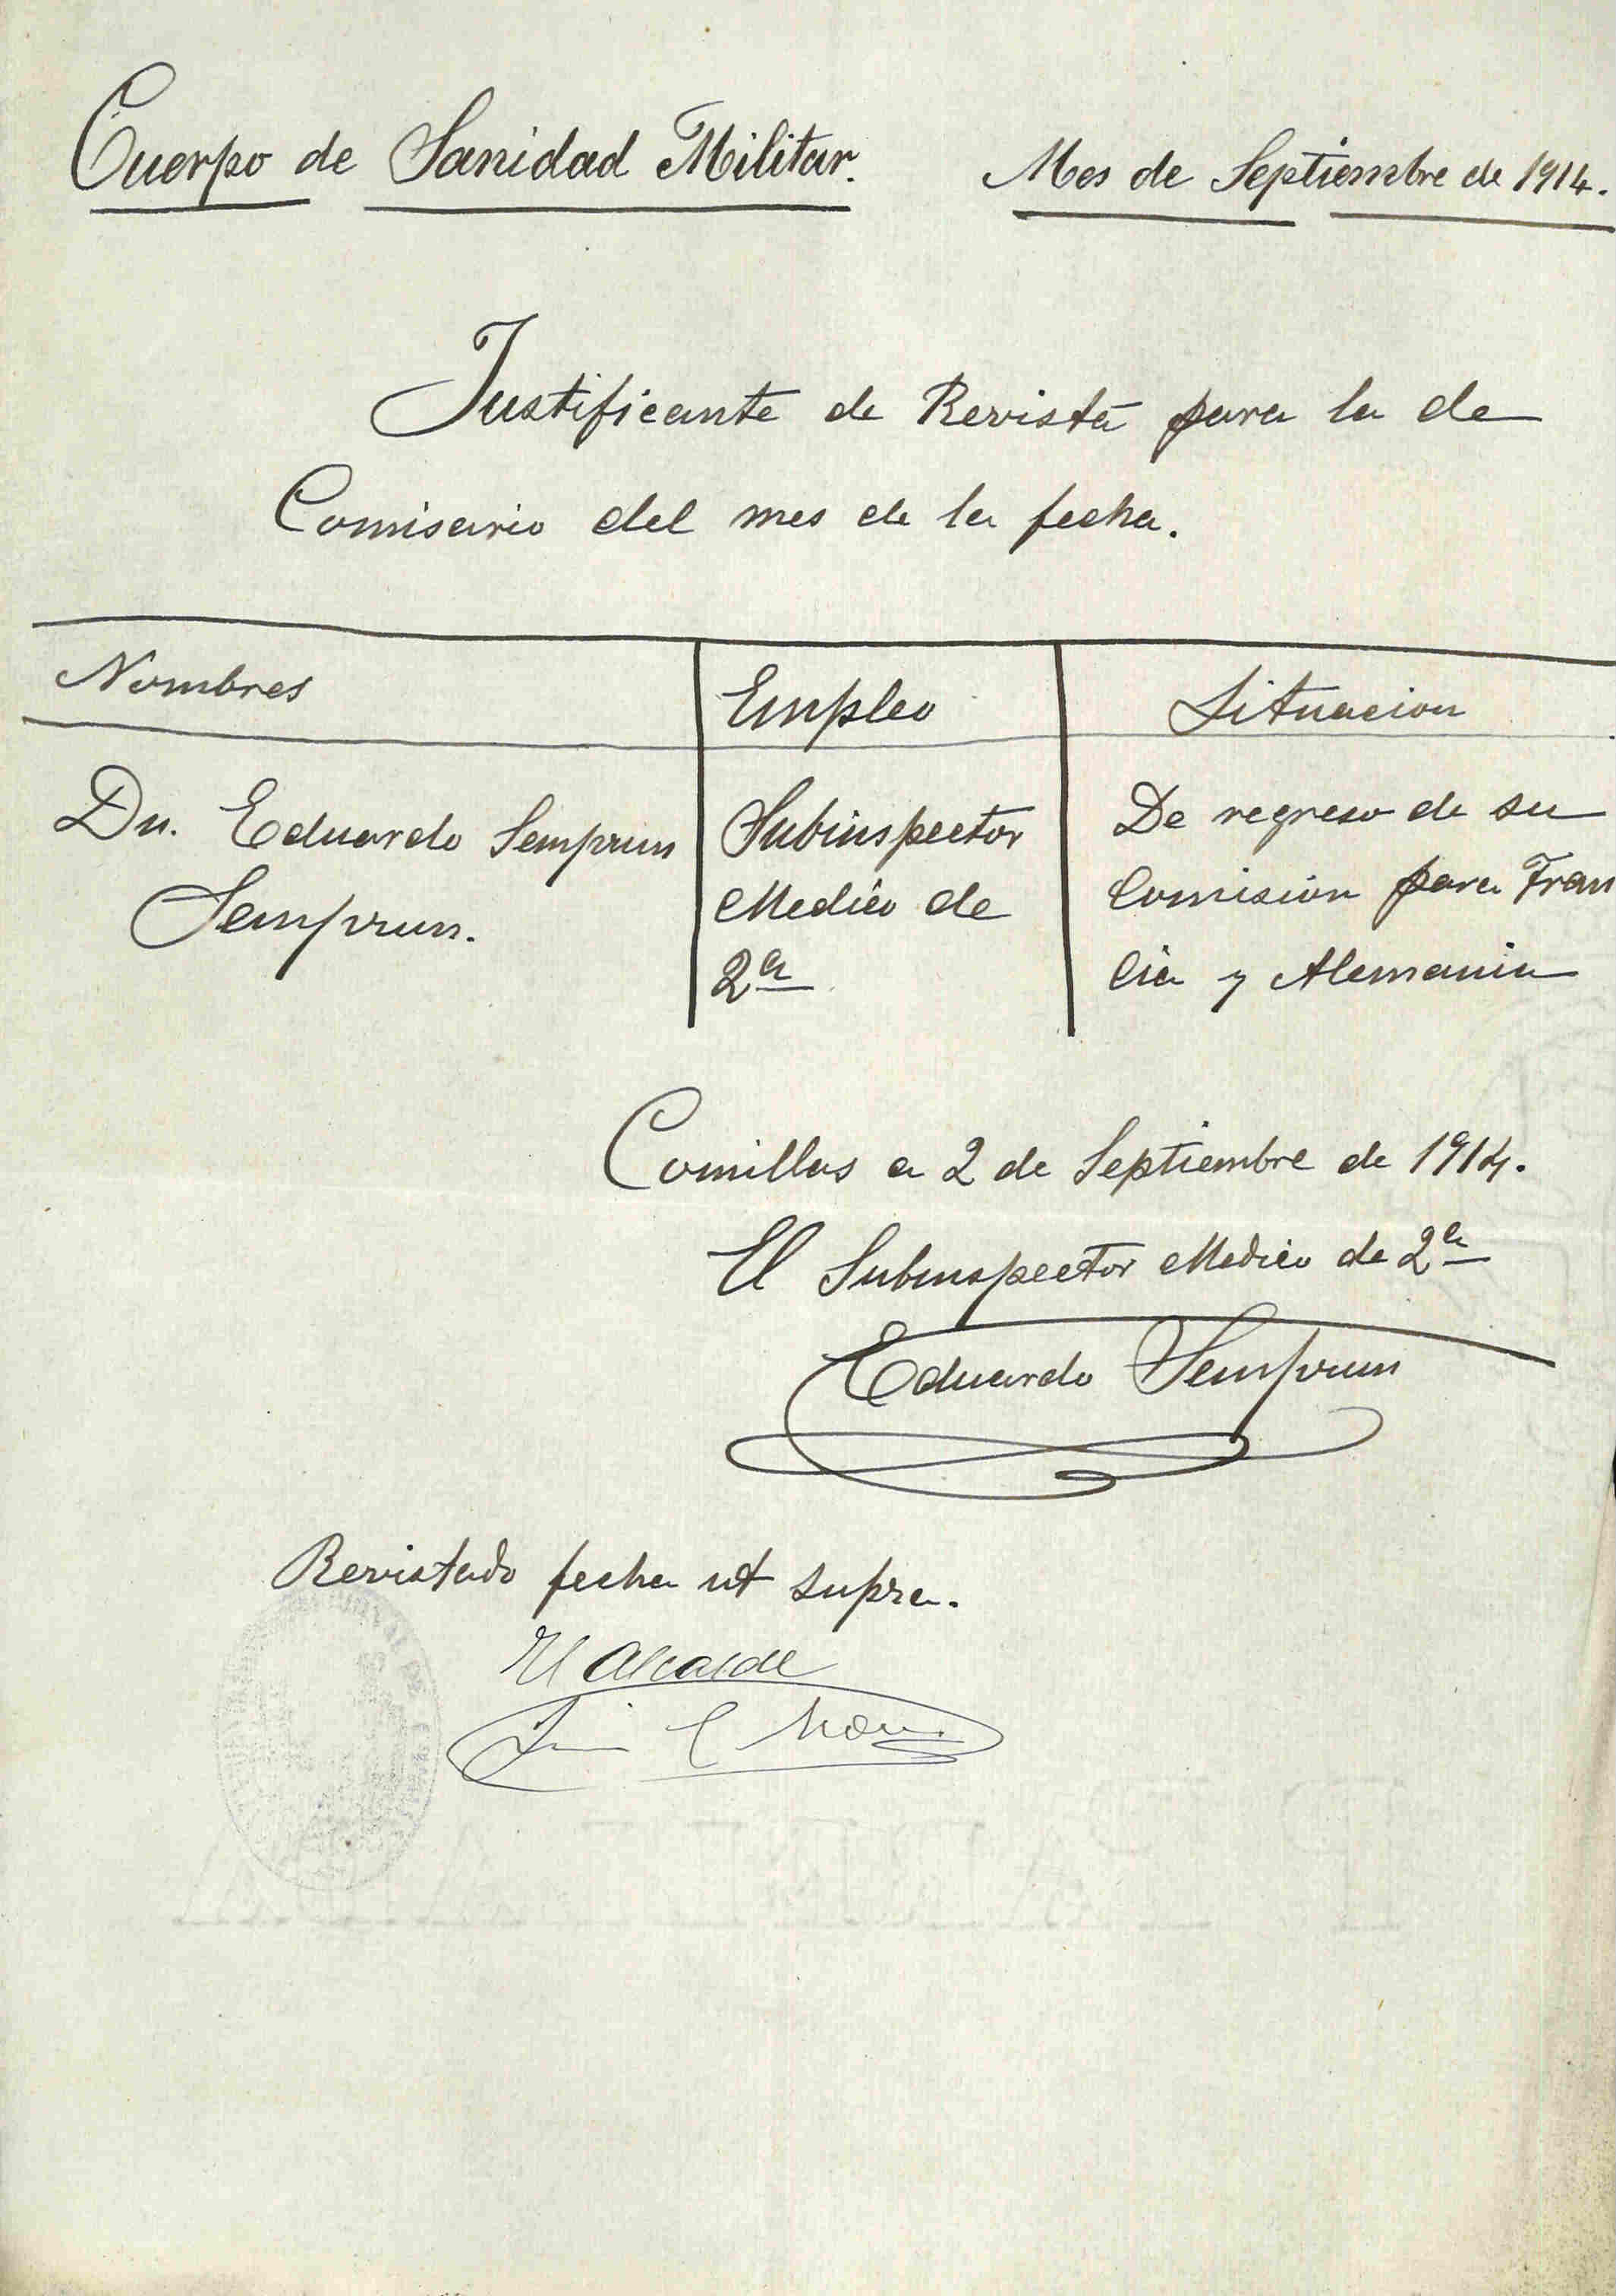 Cuerpo de Sanidad Militar. Mes de Septiembre de 1914.
Justificante de Revista para la de
Comisario del mes de la fecha.
Nombres Empleo Situacion
Dn. Eduardo Semprun Subinspector De regreso de su
Semprun. Medico de Comision para Fran
2ª cia y Alemania
Comillas a 2 de Septiembre de 1914.
El Subinspector Medico de 2ª
Eduardo Semprun
Revistado fecha ut supra.
El Alcalde